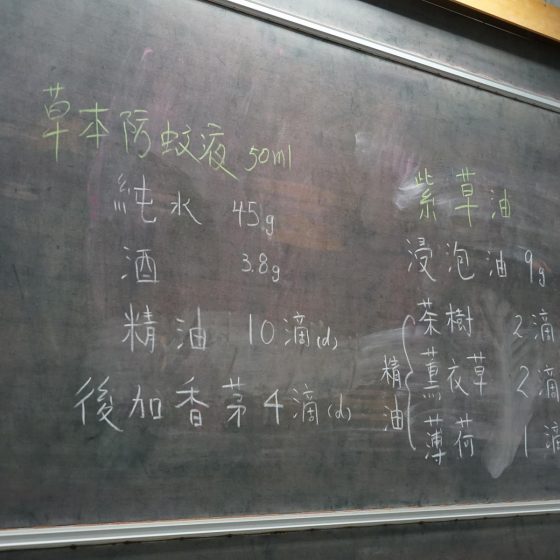 草本防蚊液 50ml
純水 45g
酒 3.8g
精油 10滴(d)
後加香茅4滴(d)
紫草油
浸泡油 9g
精油
茶樹 2滴
薰衣草 2滴
薄荷 1滴